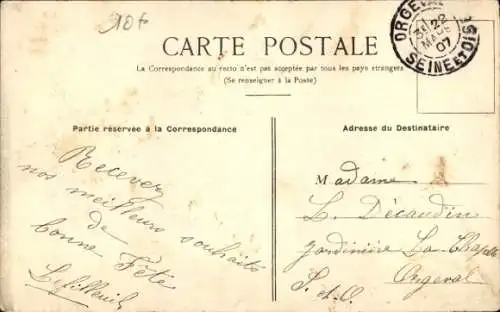 10f
ORGEVAL
3E 22
MARS
07
SEINE ET OISE
CARTE POSTALE
La Correspondance au recto n'est pas acceptée par tous les pays étrangers
(Se renseigner à la Poste)
Partie réservée à la Correspondance
Recevez
nos meilleurs souhaits
de
bonne Fête
Adresse du Destinataire
Madame
L. Décaudin
Jardinière La Chapelle
Orgeval
S. et O.